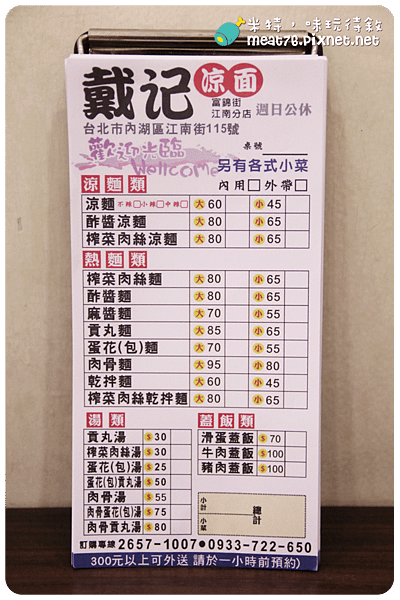 米特，味玩待敘
meat76.pixnet.net
戴记 凉面
富錦街
江南分店
週日公休
台北市內湖區江南街115號
歡迎光臨
Wellcome
桌號
另有各式小菜
涼麵類 內用□ 外帶□
涼麵 不辣□小辣□中辣□ 大 60 小 45
酢醬涼麵 大 80 小 65
榨菜肉絲涼麵 大 80 小 65
熱麵類
榨菜肉絲麵 大 80 小 65
酢醬麵 大 80 小 65
麻醬麵 大 70 小 55
貢丸麵 大 85 小 65
蛋花(包)麵 大 70 小 55
肉骨麵 大 95 小 80
乾拌麵 大 60 小 45
榨菜肉絲乾拌麵 大 80 小 65
湯類
貢丸湯 $ 30
榨菜肉絲湯 $ 30
蛋花(包)湯 $ 25
蛋花(包)貢丸湯 $ 50
肉骨湯 $ 55
肉骨蛋花(包)湯 $ 75
肉骨貢丸湯 $ 80
蓋飯類
滑蛋蓋飯 $ 70
牛肉蓋飯 $100
豬肉蓋飯 $100
小計
小菜
總計
訂購專線 2657-1007·0933-722-650
300元以上可外送 請於一小時前預約)